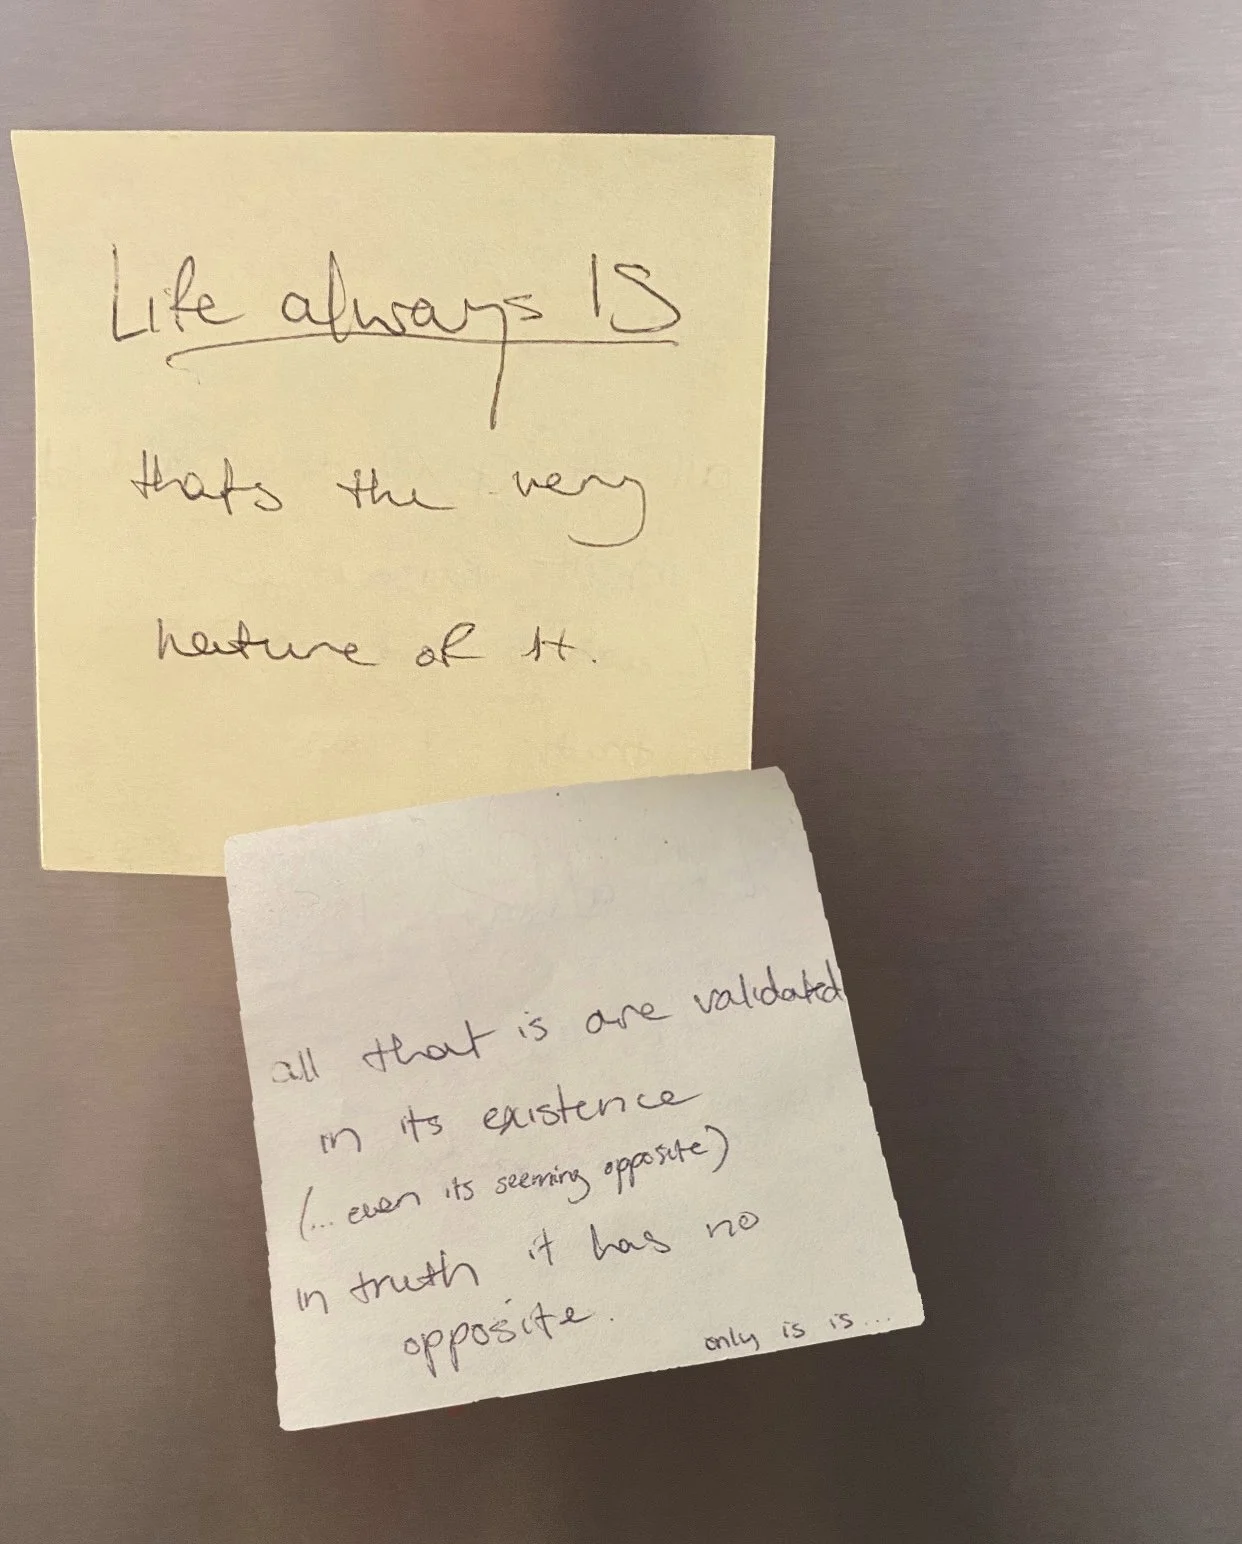 Life always IS
thats the very
nature of it.
all that is are validated
in its existence
(... even its seeming opposite)
in truth it has no
opposite.
only is is...